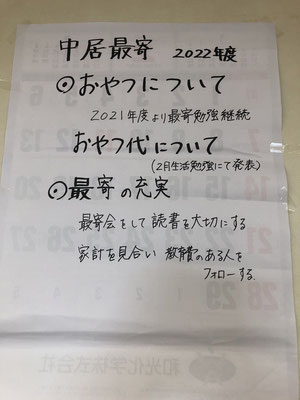 中居最寄 2022年度
◎おやつについて
2021年度より最寄勉強継続
おやつ代について
(2月生活勉強にて発表)
◎最寄の充実
最寄会をして読書を大切にする
家計を見合い 教育費のある人を
フォローする。
和光化学株式会社